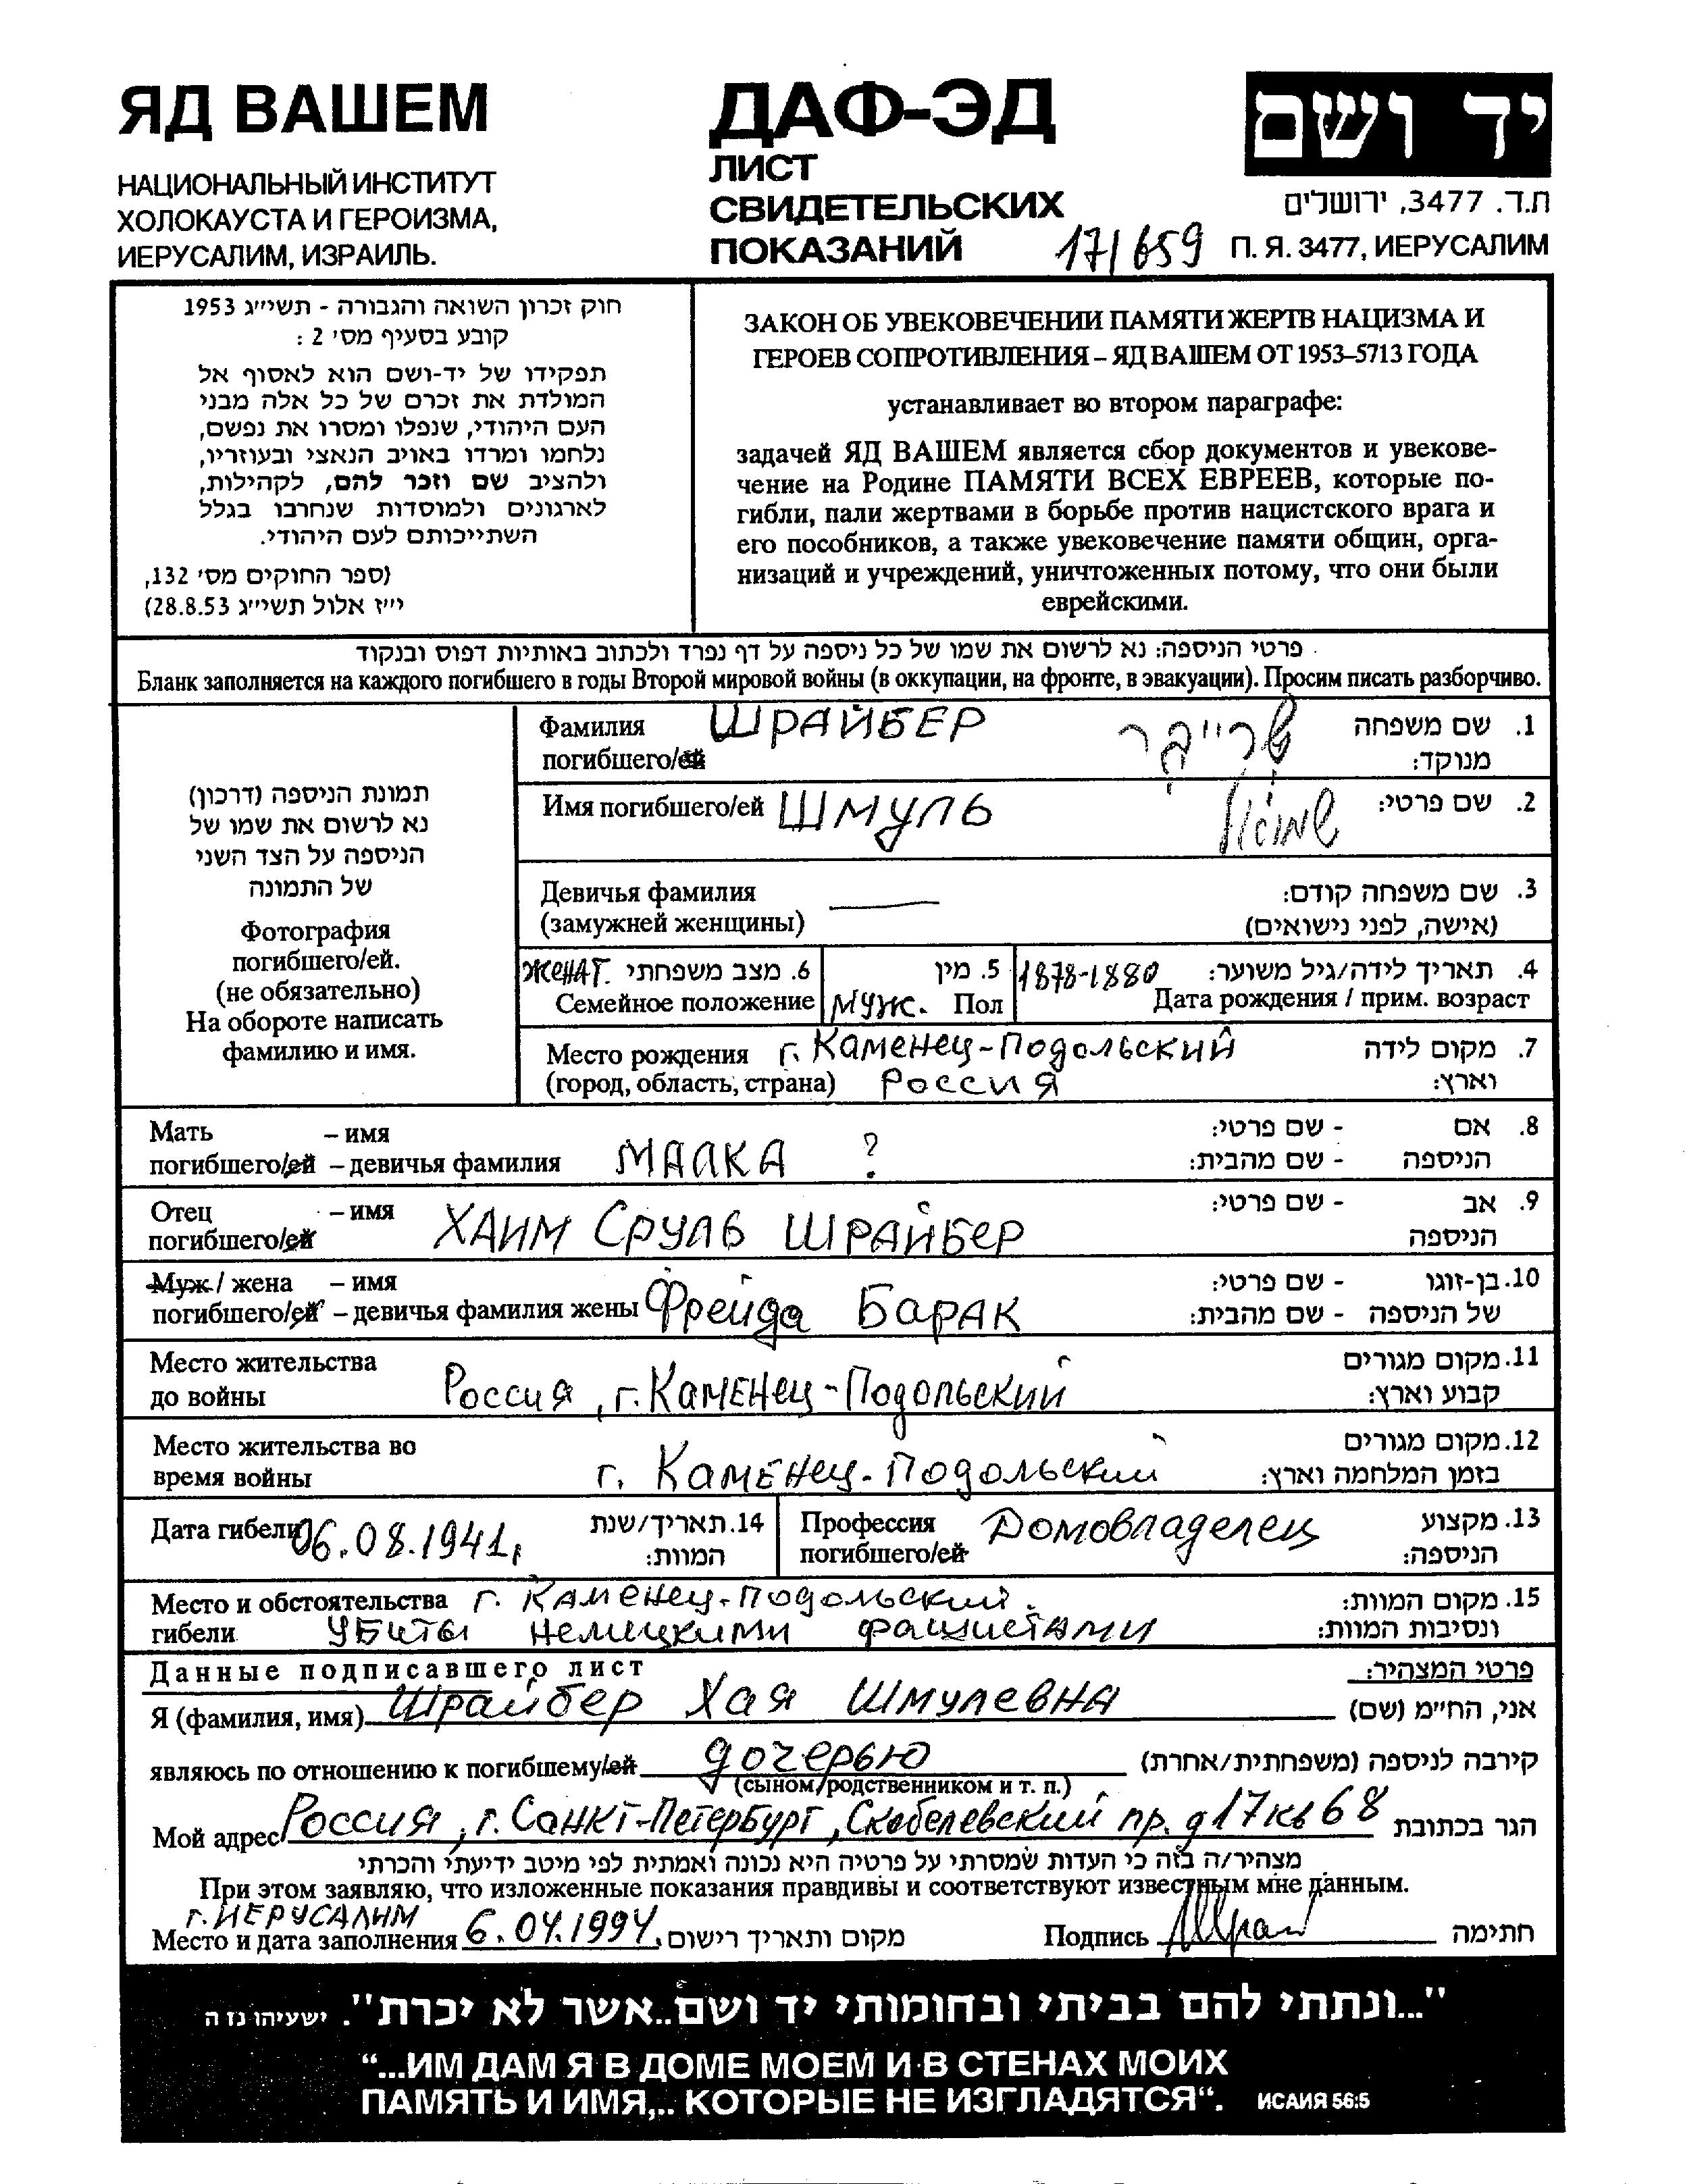 ЯД ВАШЕМ
НАЦИОНАЛЬНЫЙ ИНСТИТУТ
ХОЛОКАУСТА И ГЕРОИЗМА,
ИЕРУСАЛИМ, ИЗРАИЛЬ.
ДАФ-ЭД
ЛИСТ
СВИДЕТЕЛЬСКИХ
ПОКАЗАНИЙ
17/659
יד ושם
ת.ד. 3477, ירושלים
П. Я. 3477, ИЕРУСАЛИМ
חוק זכרון השואה והגבורה - תשי״ג 1953
קובע בסעיף מס׳ 2 :
תפקידו של יד-ושם הוא לאסוף אל
המולדת את זכרם של כל אלה מבני
העם היהודי, שנפלו ומסרו את נפשם,
נלחמו ומרדו באויב הנאצי ובעוזריו,
ולהציב שם וזכר להם, לקהילות,
לארגונים ולמוסדות שנחרבו בגלל
השתייכותם לעם היהודי.
(ספר החוקים מס׳ 132,
י״ז אלול תשי״ג 28.8.53)
ЗАКОН ОБ УВЕКОВЕЧЕНИИ ПАМЯТИ ЖЕРТВ НАЦИЗМА И
ГЕРОЕВ СОПРОТИВЛЕНИЯ – ЯД ВАШЕМ ОТ 1953–5713 ГОДА
устанавливает во втором параграфе:
задачей ЯД ВАШЕМ является сбор документов и увекове-
чение на Родине ПАМЯТИ ВСЕХ ЕВРЕЕВ, которые по-
гибли, пали жертвами в борьбе против нацистского врага и
его пособников, а также увековечение памяти общин, орга-
низаций и учреждений, уничтоженных потому, что они были
еврейскими.
פרטי הניספה: נא לרשום את שמו של כל ניספה על דף נפרד ולכתוב באותיות דפוס ובנקוד
Бланк заполняется на каждого погибшего в годы Второй мировой войны (в оккупации, на фронте, в эвакуации). Просим писать разборчиво.
תמונת הניספה (דרכון)
נא לרשום את שמו של
הניספה על הצד השני
של התמונה
Фотография
погибшего/ей.
(не обязательно)
На обороте написать
фамилию и имя.
Фамилия ШРАЙБЕР שרייבר 1. שם משפחה
погибшего/ей מנוקד:
Имя погибшего/ей ШМУЛЬ שמואל 2. שם פרטי:
Девичья фамилия 3. שם משפחה קודם:
(замужней женщины) (אישה, לפני נישואים)
ЖЕНАТ. 6. מצב משפחתי 5. מין 1878-1880 4. תאריך לידה/גיל משוער:
Семейное положение МУЖ. Пол Дата рождения / прим. возраст
Место рождения г. Каменец-Подольский 7. מקום לידה
(город, область, страна) Россия וארץ:
Мать – имя 8. אם - שם פרטי:
погибшего/ей – девичья фамилия МАЛКА ? הניספה - שם מהבית:
Отец – имя 9. אב - שם פרטי:
погибшего/ей ХАИМ СРУЛЬ ШРАЙБЕР הניספה
Муж / жена – имя 10. בן-זוגו - שם פרטי:
погибшего/ей – девичья фамилия жены Фрейда Барак של הניספה - שם מהבית:
Место жительства 11. מקום מגורים
до войны Россия, г. Каменец-Подольский קבוע וארץ:
Место жительства во 12. מקום מגורים
время войны г. Каменец-Подольский בזמן המלחמה וארץ:
Дата гибели 06.08.1941, 14. תאריך/שנת המוות:
Профессия Домовладелец 13. מקצוע
погибшего/ей הניספה:
Место и обстоятельства г. Каменец-Подольский. 15. מקום המוות:
гибели Убиты немецкими фашистами ונסיבות המוות:
Данные подписавшего лист פרטי המצהיר:
Я (фамилия, имя) Шрайбер Хая Шмулевна אני, הח״מ (שם)
являюсь по отношению к погибшему/ей дочерью קירבה לניספה (משפחתית/אחרת)
(сыном/родственником и т. п.)
Мой адрес Россия, г. Санкт-Петербург, Скобелевский пр. д 17 кв 68 הגר בכתובת
מצהיר/ה בזה כי העדות שמסרתי על פרטיה היא נכונה ואמתית לפי מיטב ידיעתי והכרתי
При этом заявляю, что изложенные показания правдивы и соответствуют известным мне данным.
г. ИЕРУСАЛИМ
Место и дата заполнения 6.04.1994. מקום ותאריך רישום Подпись חתימה
"...ונתתי להם בביתי ובחומותי יד ושם..אשר לא יכרת". ישעיהו נז ה
“...ИМ ДАМ Я В ДОМЕ МОЕМ И В СТЕНАХ МОИХ
ПАМЯТЬ И ИМЯ,.. КОТОРЫЕ НЕ ИЗГЛАДЯТСЯ“. ИСАИЯ 56:5